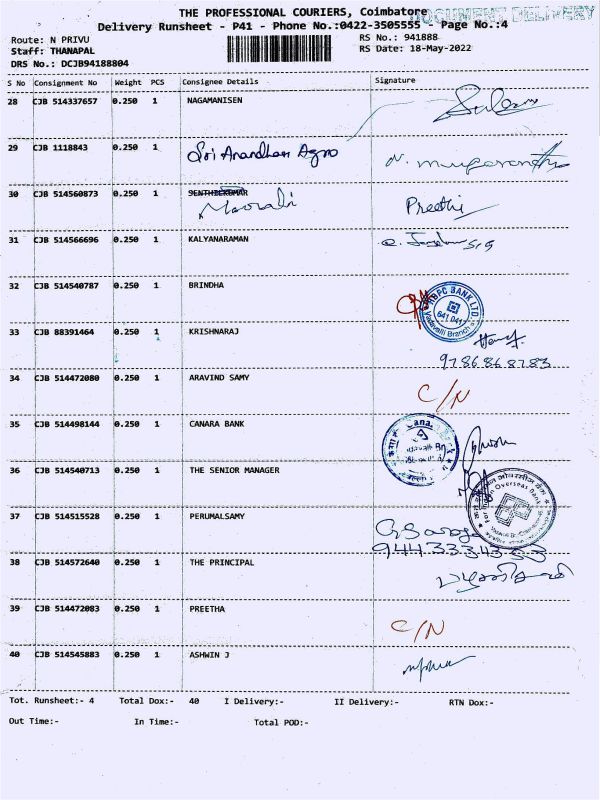 THE PROFESSIONAL COURIERS, Coimbatore
DOCUMENT DELIVERY
Delivery Runsheet - P41 - Phone No.:0422-3505555 - Page No.:4
Route: N PRIVU RS No.: 941888
Staff: THANAPAL RS Date: 18-May-2022
DRS No.: DCJB94188804
S No Consignment No Weight PCS Consignee Details Signature
28 CJB 514337657 0.250 1 NAGAMANISEN
29 CJB 1118843 0.250 1 Sri Anandhan Agro
30 CJB 514560873 0.250 1 SENTHILKUMAR Preethi
31 CJB 514566696 0.250 1 KALYANARAMAN
32 CJB 514540787 0.250 1 BRINDHA
HDFC BANK LTD.
641 041
Vadavalli Branch
33 CJB 88391464 0.250 1 KRISHNARAJ
9786868783
34 CJB 514472080 0.250 1 ARAVIND SAMY C/N
35 CJB 514498144 0.250 1 CANARA BANK
36 CJB 514540713 0.250 1 THE SENIOR MANAGER
Overseas Bank
37 CJB 514515528 0.250 1 PERUMALSAMY
38 CJB 514572640 0.250 1 THE PRINCIPAL
39 CJB 514472083 0.250 1 PREETHA C/N
40 CJB 514545883 0.250 1 ASHWIN J
Tot. Runsheet:- 4 Total Dox:- 40 I Delivery:- II Delivery:- RTN Dox:-
Out Time:- In Time:- Total POD:-